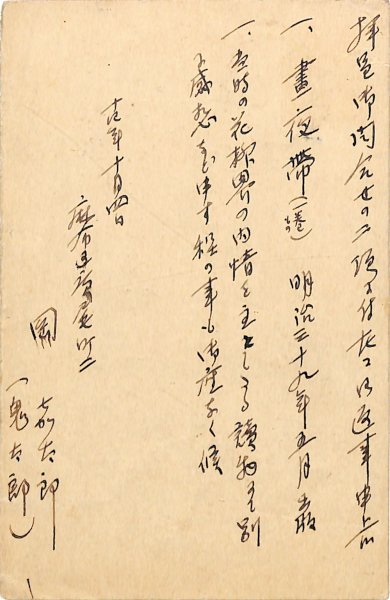 拝復御問合せの二項に付左に御返事申上候
一、晝夜帶（一巻もの）　明治三十九年五月出版
一、当時の花柳界の内情を主としたる讀物にて別
に感想を申す程の事も御座なく候
十月四日
麻布區廣尾町二
岡
嘉太郎
（鬼太郎）